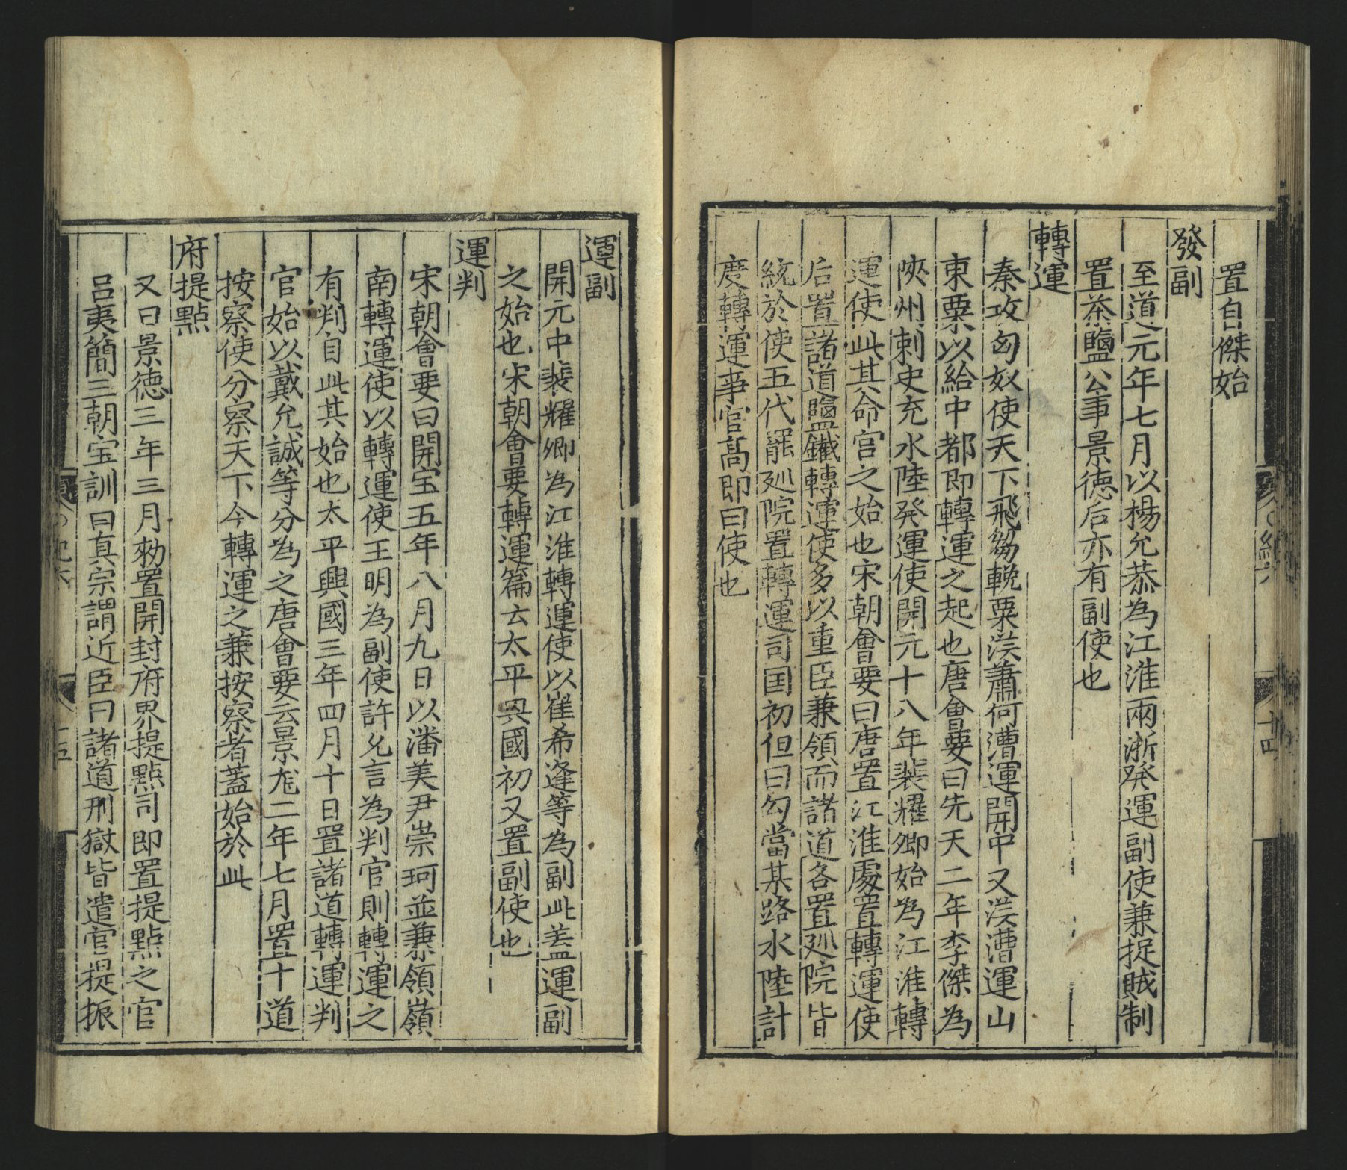 置自傑始
發副
至道元年七月以楊允恭為江淮兩浙發運副使兼捉賊制
置茶鹽公事景德后亦有副使也
轉運
秦攻匈奴使天下飛芻輓粟漢蕭何漕運關中又漢漕運山
東粟以給中都即轉運之起也唐會要曰先天二年李傑為
陝州刺史充水陸發運使開元十八年裴耀卿始為江淮轉
運使此其命官之始也宋朝會要曰唐置江淮處置轉運使
后置諸道鹽鐵轉運使多以重臣兼領而諸道各置廵院皆
統於使五代罷廵院置轉運司国初但曰勾當某路水陸計
度轉運事官高即曰使也
運副
開元中裴耀卿為江淮轉運使以崔希逢等為副此盖運副
之始也宋朝會要轉運篇云太平興國初又置副使也
運判
宋朝會要曰開宝五年八月九日以潘美尹崇珂並兼領嶺
南轉運使以轉運使王明為副使許九言為判官則轉運之
有判自此其始也太平興國三年四月十日置諸道轉運判
官始以戴允誠等分為之唐會要云景龙二年七月置十道
按察使分察天下今轉運之兼按察者蓋始於此
府提點
又曰景德三年三月勑置開封府界提點司即置提點之官
吕夷簡三朝宝訓曰真宗謂近臣曰諸道刑獄皆遣官提振